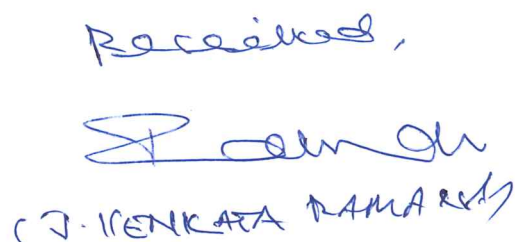 Received,
(J. VENKATA RAMANA)